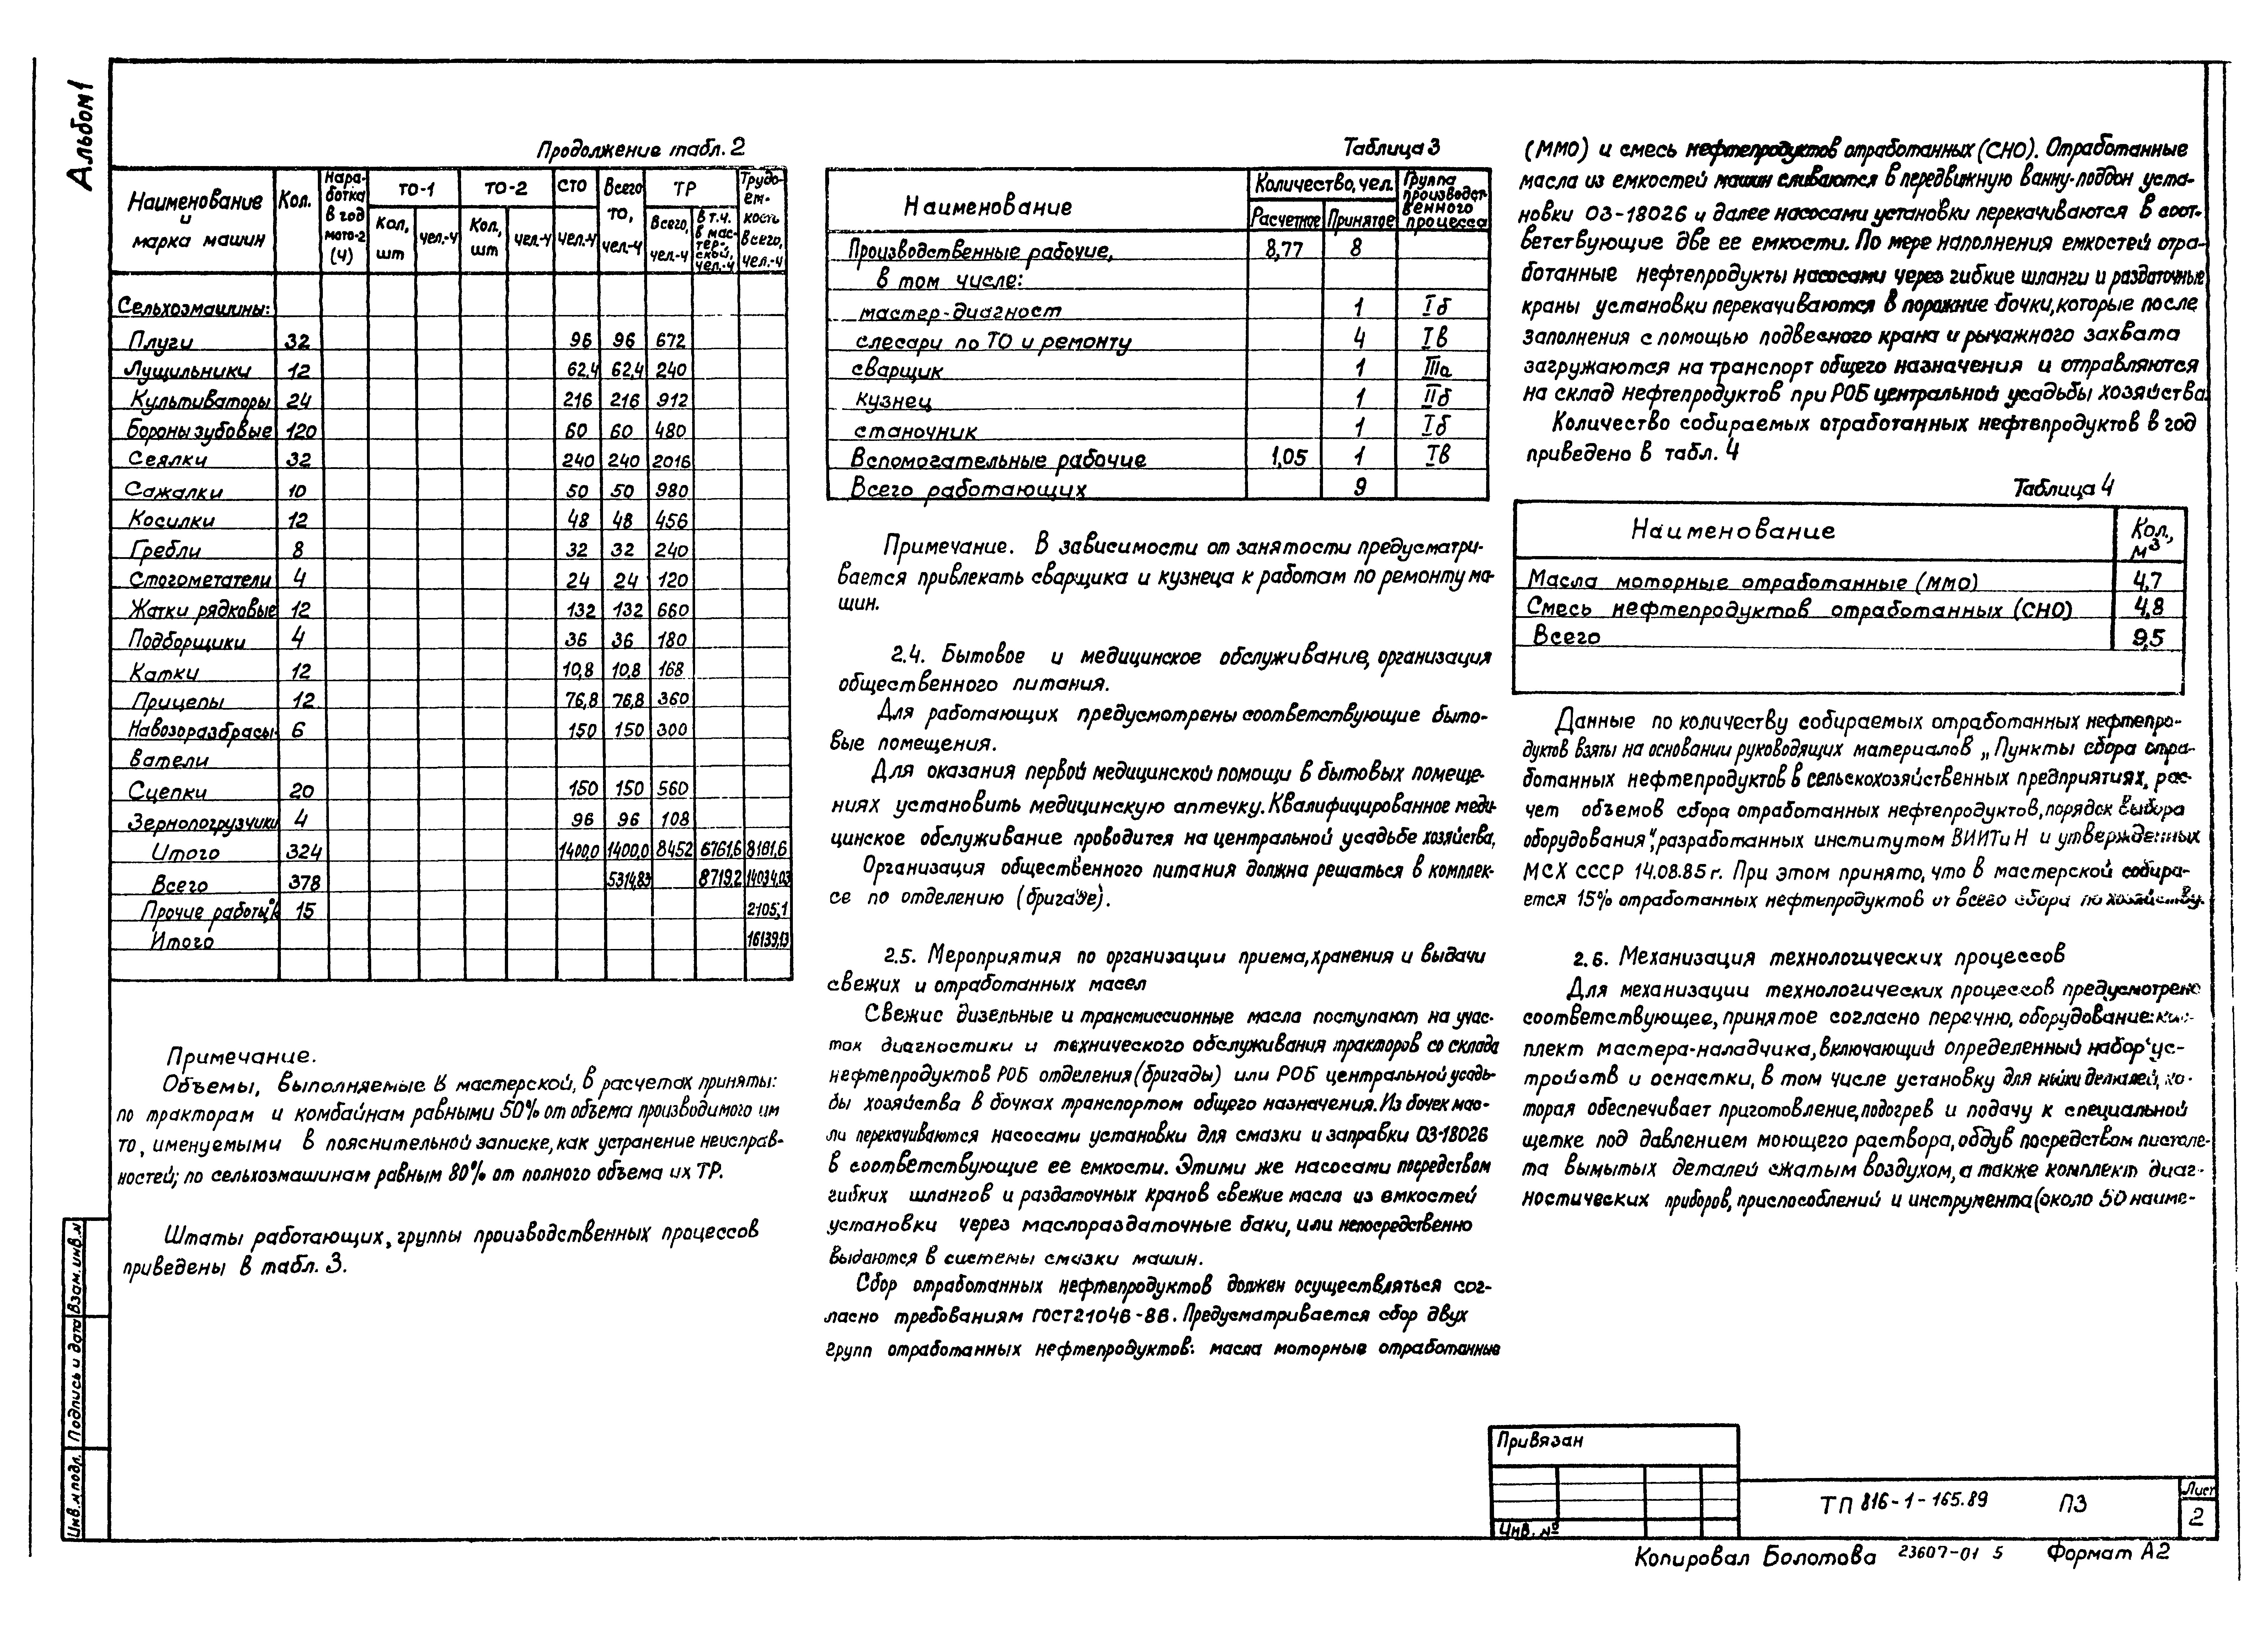 Альбом 1
Продолжение табл. 2
Наименование и марка машин | Кол. | Наработка в год мото-ч (ч) | ТО-1 Кол, шт | ТО-1 чел.-ч | ТО-2 Кол, шт | ТО-2 чел-ч | СТО чел-ч | Всего ТО, чел.-ч | ТР Всего, чел.-ч | ТР в т.ч. в мастерской, чел.-ч | Трудоемкость всего, чел.-ч
Сельхозмашины:
Плуги 32 96 96 672
Лущильники 12 62,4 62,4 240
Культиваторы 24 216 216 912
Бороны зубовые 120 60 60 480
Сеялки 32 240 240 2016
Сажалки 10 50 50 980
Косилки 12 48 48 456
Гребли 8 32 32 240
Стогометатели 4 24 24 120
Жатки рядковые 12 132 132 660
Подборщики 4 36 36 180
Катки 12 10,8 10,8 168
Прицепы 12 76,8 76,8 360
Навозоразбрасы- 6 150 150 300
ватели
Сцепки 20 150 150 560
Зернопогрузчики 4 96 96 108
Итого 324 1400,0 1400,0 8452 6761,6 8161,6
Всего 378 5314,83 8719,2 14034,03
Прочие работы % 15 2105,1
Итого 16139,13
Примечание.
Объемы, выполняемые в мастерской, в расчетах приняты:
по тракторам и комбайнам равными 50% от объема производимого им
ТО, именуемыми в пояснительной записке, как устранение неисправ-
ностей; по сельхозмашинам равным 80% от полного объема их ТР.
Штаты работающих, группы производственных процессов
приведены в табл. 3.
Таблица 3
Наименование | Количество, чел. Расчетное | Принятое | Группа производственного процесса
Производственные рабочие, 8,77 8
в том числе:
мастер-диагност 1 Iб
слесари по ТО и ремонту 4 Iв
сварщик 1 IIIа
кузнец 1 IIб
станочник 1 Iб
Вспомогательные рабочие 1,05 1 Iв
Всего работающих 9
Примечание. В зависимости от занятости предусматри-
вается привлекать сварщика и кузнеца к работам по ремонту ма-
шин.
2.4. Бытовое и медицинское обслуживание, организация
общественного питания.
Для работающих предусмотрены соответствующие быто-
вые помещения.
Для оказания первой медицинской помощи в бытовых помеще-
ниях установить медицинскую аптечку. Квалифицированное меди-
цинское обслуживание проводится на центральной усадьбе хозяйства.
Организация общественного питания должна решаться в комплек-
се по отделению (бригаде).
2.5. Мероприятия по организации приема, хранения и выдачи
свежих и отработанных масел
Свежие дизельные и трансмиссионные масла поступают на учас-
ток диагностики и технического обслуживания тракторов со склада
нефтепродуктов РОБ отделения (бригады) или РОБ центральной усадь-
бы хозяйства в бочках транспортом общего назначения. Из бочек мас-
ли перекачиваются насосами установки для смазки и заправки ОЗ-18026
в соответствующие ее емкости. Этими же насосами посредством
гибких шлангов и раздаточных кранов свежие масла из емкостей
установки через маслораздаточные баки, или непосредственно
выдаются в системы смазки машин.
Сбор отработанных нефтепродуктов должен осуществляться сог-
ласно требованиям ГОСТ 21046-86. Предусматривается сбор двух
групп отработанных нефтепродуктов: масла моторные отработанные
(ММО) и смесь нефтепродуктов отработанных (СНО). Отработанные
масла из емкостей машин сливаются в передвижную ванну-поддон уста-
новки ОЗ-18026 и далее насосами установки перекачиваются в соот-
ветствующие две ее емкости. По мере наполнения емкостей отра-
ботанные нефтепродукты насосами через гибкие шланги и раздаточные
краны установки перекачиваются в порожние бочки, которые после
заполнения с помощью подвесного крана и рычажного захвата
загружаются на транспорт общего назначения и отправляются
на склад нефтепродуктов при РОБ центральной усадьбы хозяйства.
Количество собираемых отработанных нефтепродуктов в год
приведено в табл. 4
Таблица 4
Наименование | Кол., м³
Масла моторные отработанные (ММО) 4,7
Смесь нефтепродуктов отработанных (СНО) 4,8
Всего 9,5
Данные по количеству собираемых отработанных нефтепро-
дуктов взяты на основании руководящих материалов „Пункты сбора отра-
ботанных нефтепродуктов в сельскохозяйственных предприятиях, рас-
чет объемов сбора отработанных нефтепродуктов, порядок выбора
оборудования", разработанных институтом ВИИТиН и утвержденных
МСХ СССР 14.08.85 г. При этом принято, что в мастерской собира-
ется 15% отработанных нефтепродуктов от всего сбора по хозяйству.
2.6. Механизация технологических процессов
Для механизации технологических процессов предусмотрено
соответствующее, принятое согласно перечню, оборудование: ком-
плект мастера-наладчика, включающий определенный набор ус-
тройств и оснастки, в том числе установку для мойки деталей, ко-
торая обеспечивает приготовление, подогрев и подачу к специальной
щетке под давлением моющего раствора, обдув посредством пистоле-
та вымытых деталей сжатым воздухом, а также комплект диаг-
ностических приборов, приспособлений и инструмента (около 50 наиме-
Инв. № подл. Подпись и дата Взам. инв. №
Привязан
Инв. №
ТП 816-1-165.89 ПЗ
Лист
2
Копировал Болотова 23607-01 5 Формат А2